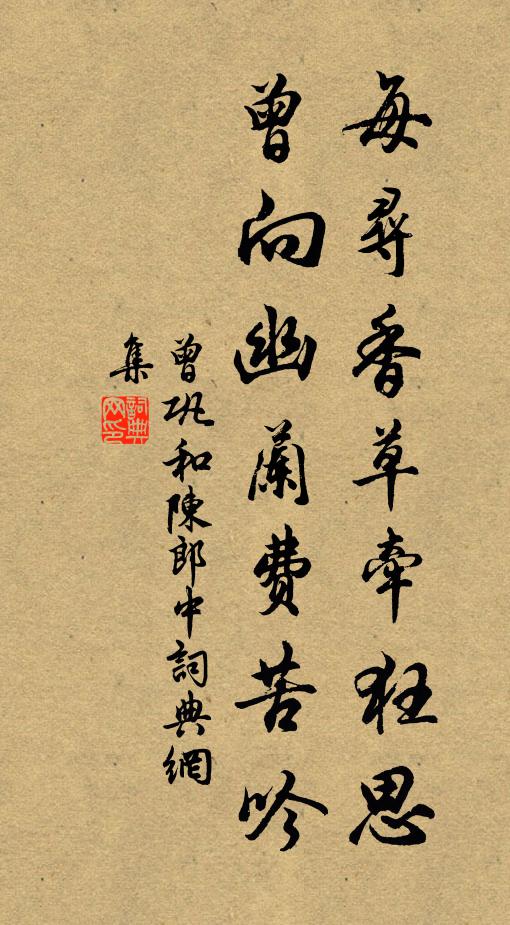 每尋香草牽狂思
曾向幽蘭費苦吟
曾巩和陳郎中詞典網
集
詞典網印